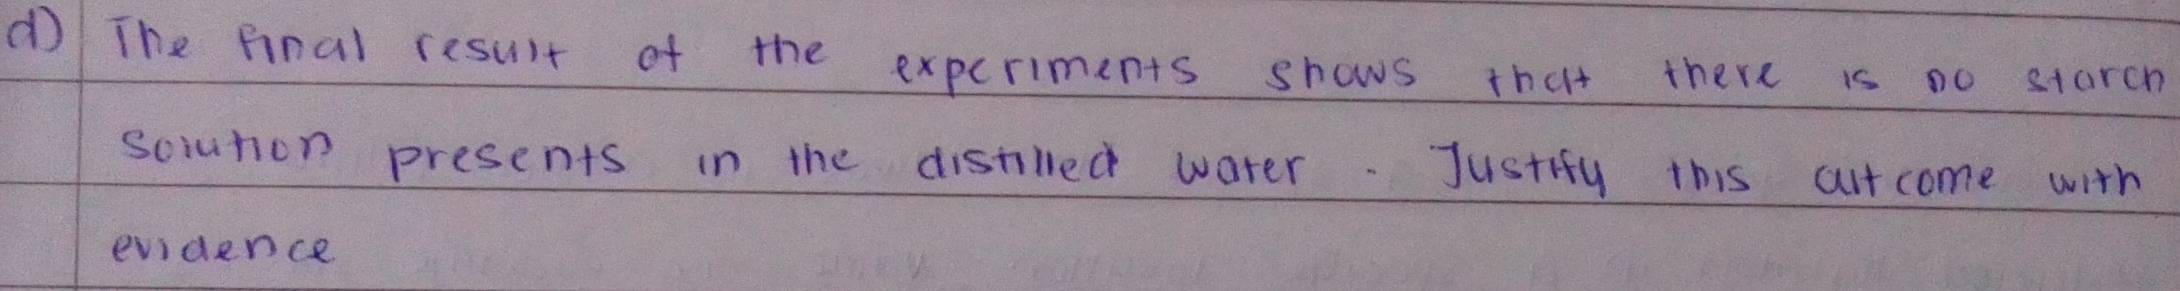 d) The final result of the experiments shows that there is no starch
solution presents in the distilled water. Justify this outcome with
evidence